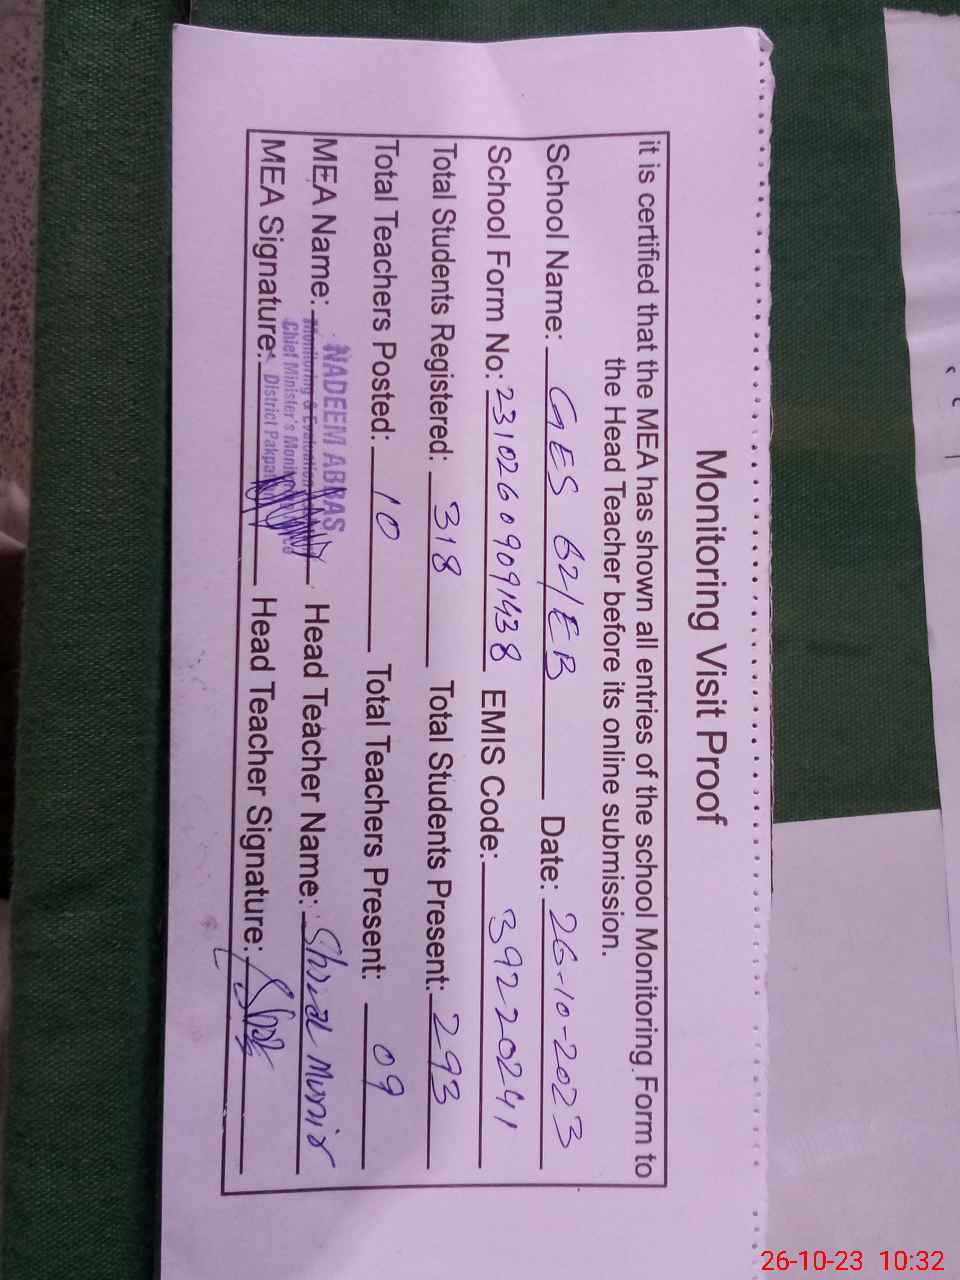 Monitoring Visit Proof
it is certified that the MEA has shown all entries of the school Monitoring Form to
the Head Teacher before its online submission.
School Name: GES 62/EB Date: 26-10-2023
School Form No: 23102609091438 EMIS Code: 39220241
Total Students Registered: 318 Total Students Present: 293
Total Teachers Posted: 10 Total Teachers Present: 09
MEA Name: NADEEM ABBAS Head Teacher Name: Munir
Monitoring & Evaluation
Chief Minister's
MEA Signature: District Head Teacher Signature:
26-10-23 10:32